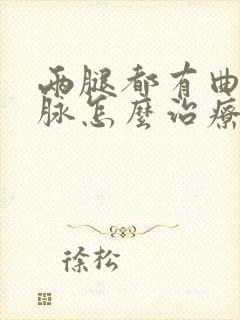 两腿都有曲
脉怎麼治療
徐松